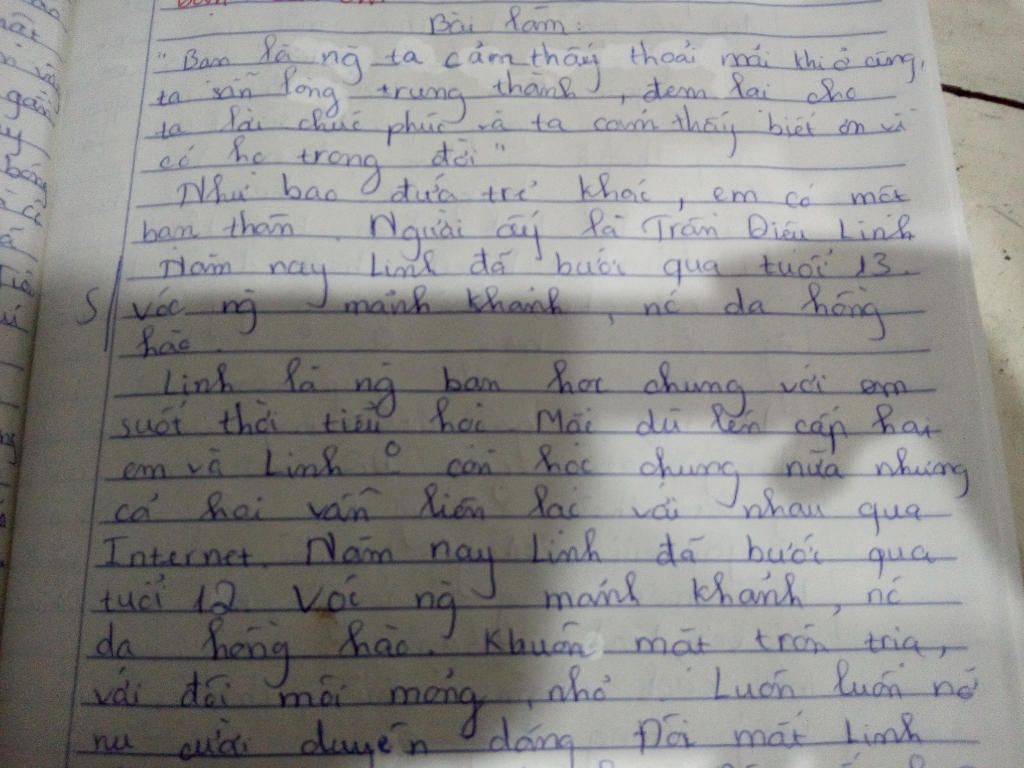 Bài làm:
"Bạn là ng ta cảm thấy thoải mái khi ở cùng,
ta sẵn lòng trung thành, đem lại cho
ta lời chúc phúc và ta cảm thấy biết ơn vì
có họ trong đời"
Như bao đứa trẻ khác, em có một
bạn thân. Người ấy là Trần Diệu Linh
Năm nay Linh đã bước qua tuổi 13.
S vóc ng mảnh khảnh, nc da hồng
hào.
Linh là ng bạn học chung với em
suốt thời tiểu học Mặc dù lên cấp hai
em và Linh 0 còn học chung nữa nhưng
cả hai vẫn liên lạc với nhau qua
Internet. Năm nay Linh đã bước qua
tuổi 12 Vóc ng mảnh khảnh, nc
da hồng hào. Khuôn mặt tròn trịa,
với đôi môi mỏng, nhỏ. Luôn luôn nở
nụ cười duyên dáng Đôi mắt Linh